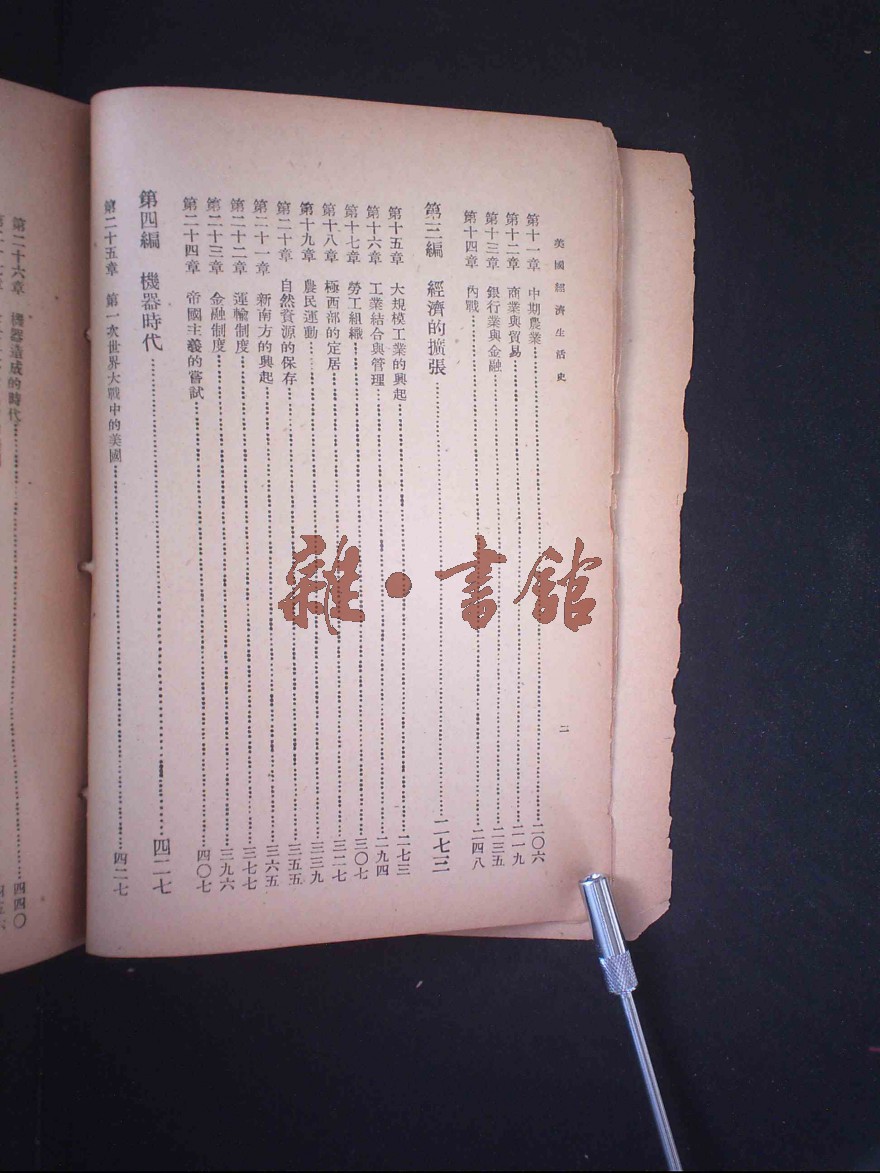 美國經濟生活史
二
第十一章 中期農業……二〇六
第十二章 商業與貿易……二一九
第十三章 銀行業與金融……二三五
第十四章 內戰……二四八
第三編 經濟的擴張……二七三
第十五章 大規模工業的興起……二七三
第十六章 工業結合與管理……二九四
第十七章 勞工組織……三〇七
第十八章 極西部的定居……三二七
第十九章 農民運動……三三九
第二十章 自然資源的保存……三五五
第二十一章 新南方的興起……三六五
第二十二章 運輸制度……三七七
第二十三章 金融制度……三九六
第二十四章 帝國主義的嘗試……四〇七
第四編 機器時代……四二七
第二十五章 第一次世界大戰中的美國……四二七
第二十六章 機器造成的時代……四四〇
雜·書館